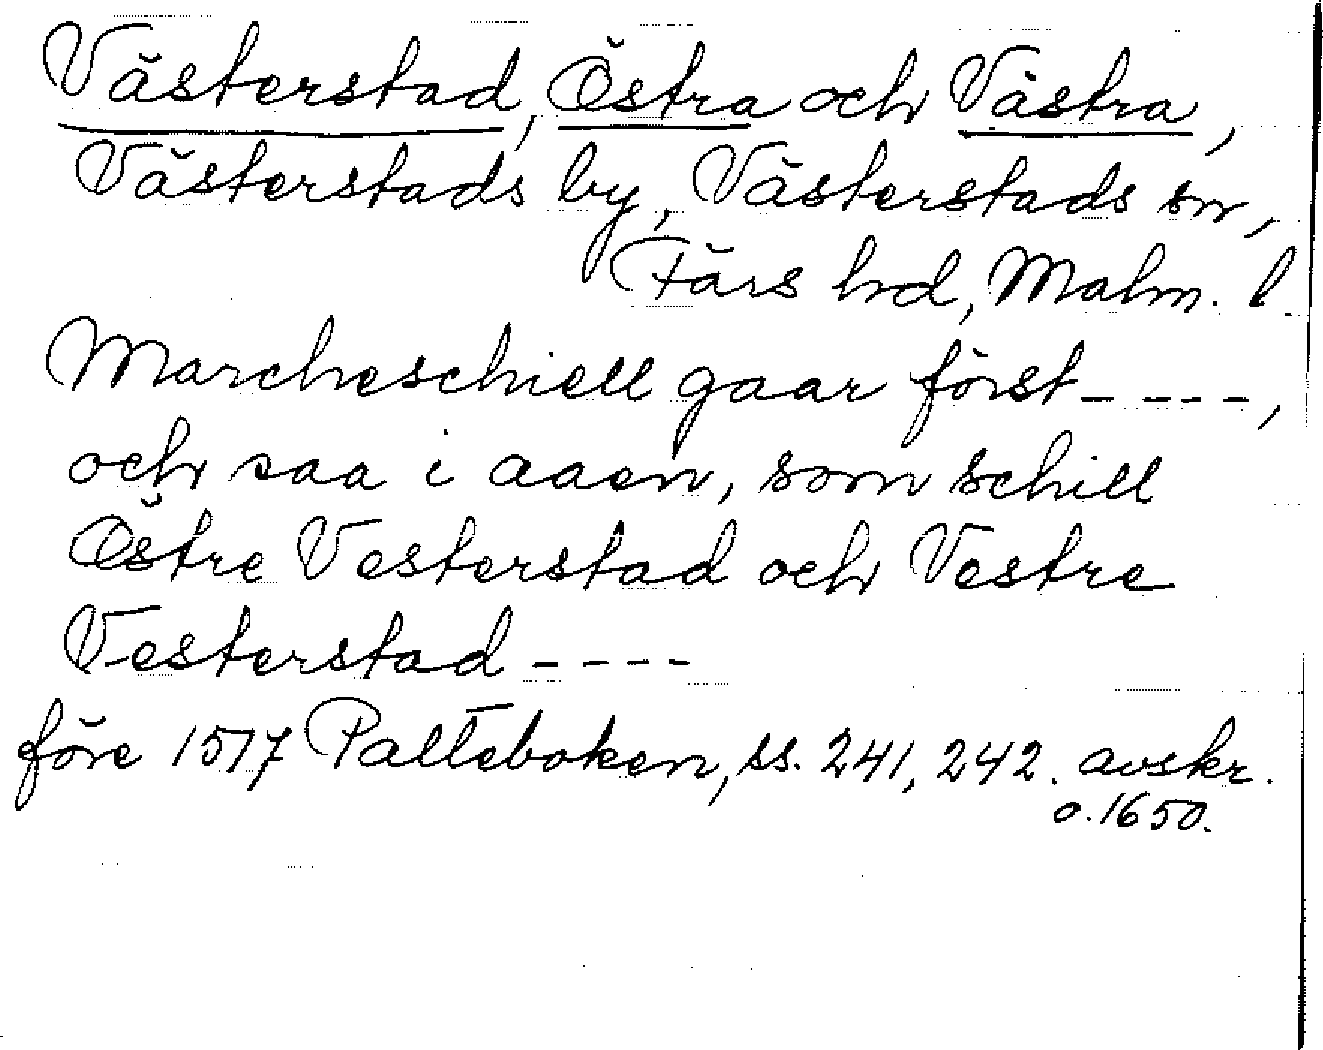 Västerstad, Östra och Västra,
Västerstads by, Västerstads sn,
Färs hd, Malm. l
Marcheschiell gaar först - - - -,
och saa i aaen, som schill
Östre Vesterstad och Vestre
Vesterstad - - - -
före 1517 Palteboken, ss. 241, 242. avskr.
o. 1650.